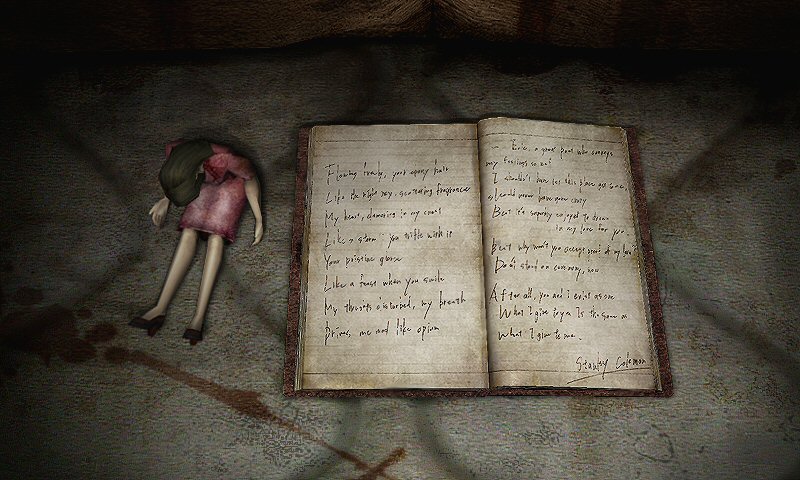 Flowing freely, your ebony hair
Like the night sky, scattering fragrance
My heart, clamoring in my chest
Like a storm - you trifle with it
Your pristine
Like a feast when you smile
My throat's disturbed, my breath
Drives me mad like opium
a great poet who conveys
my feelings so well
I wouldn't have let this place get to me,
I could never have gone crazy
But it's supremely enjoyed to drown
in my love for you.
But why won't you accept proof of my love?
Don't stand on ceremony, now
After all, you and I exist as one
What I give to you Is the same as
What I give to me.
Stanley Coleman